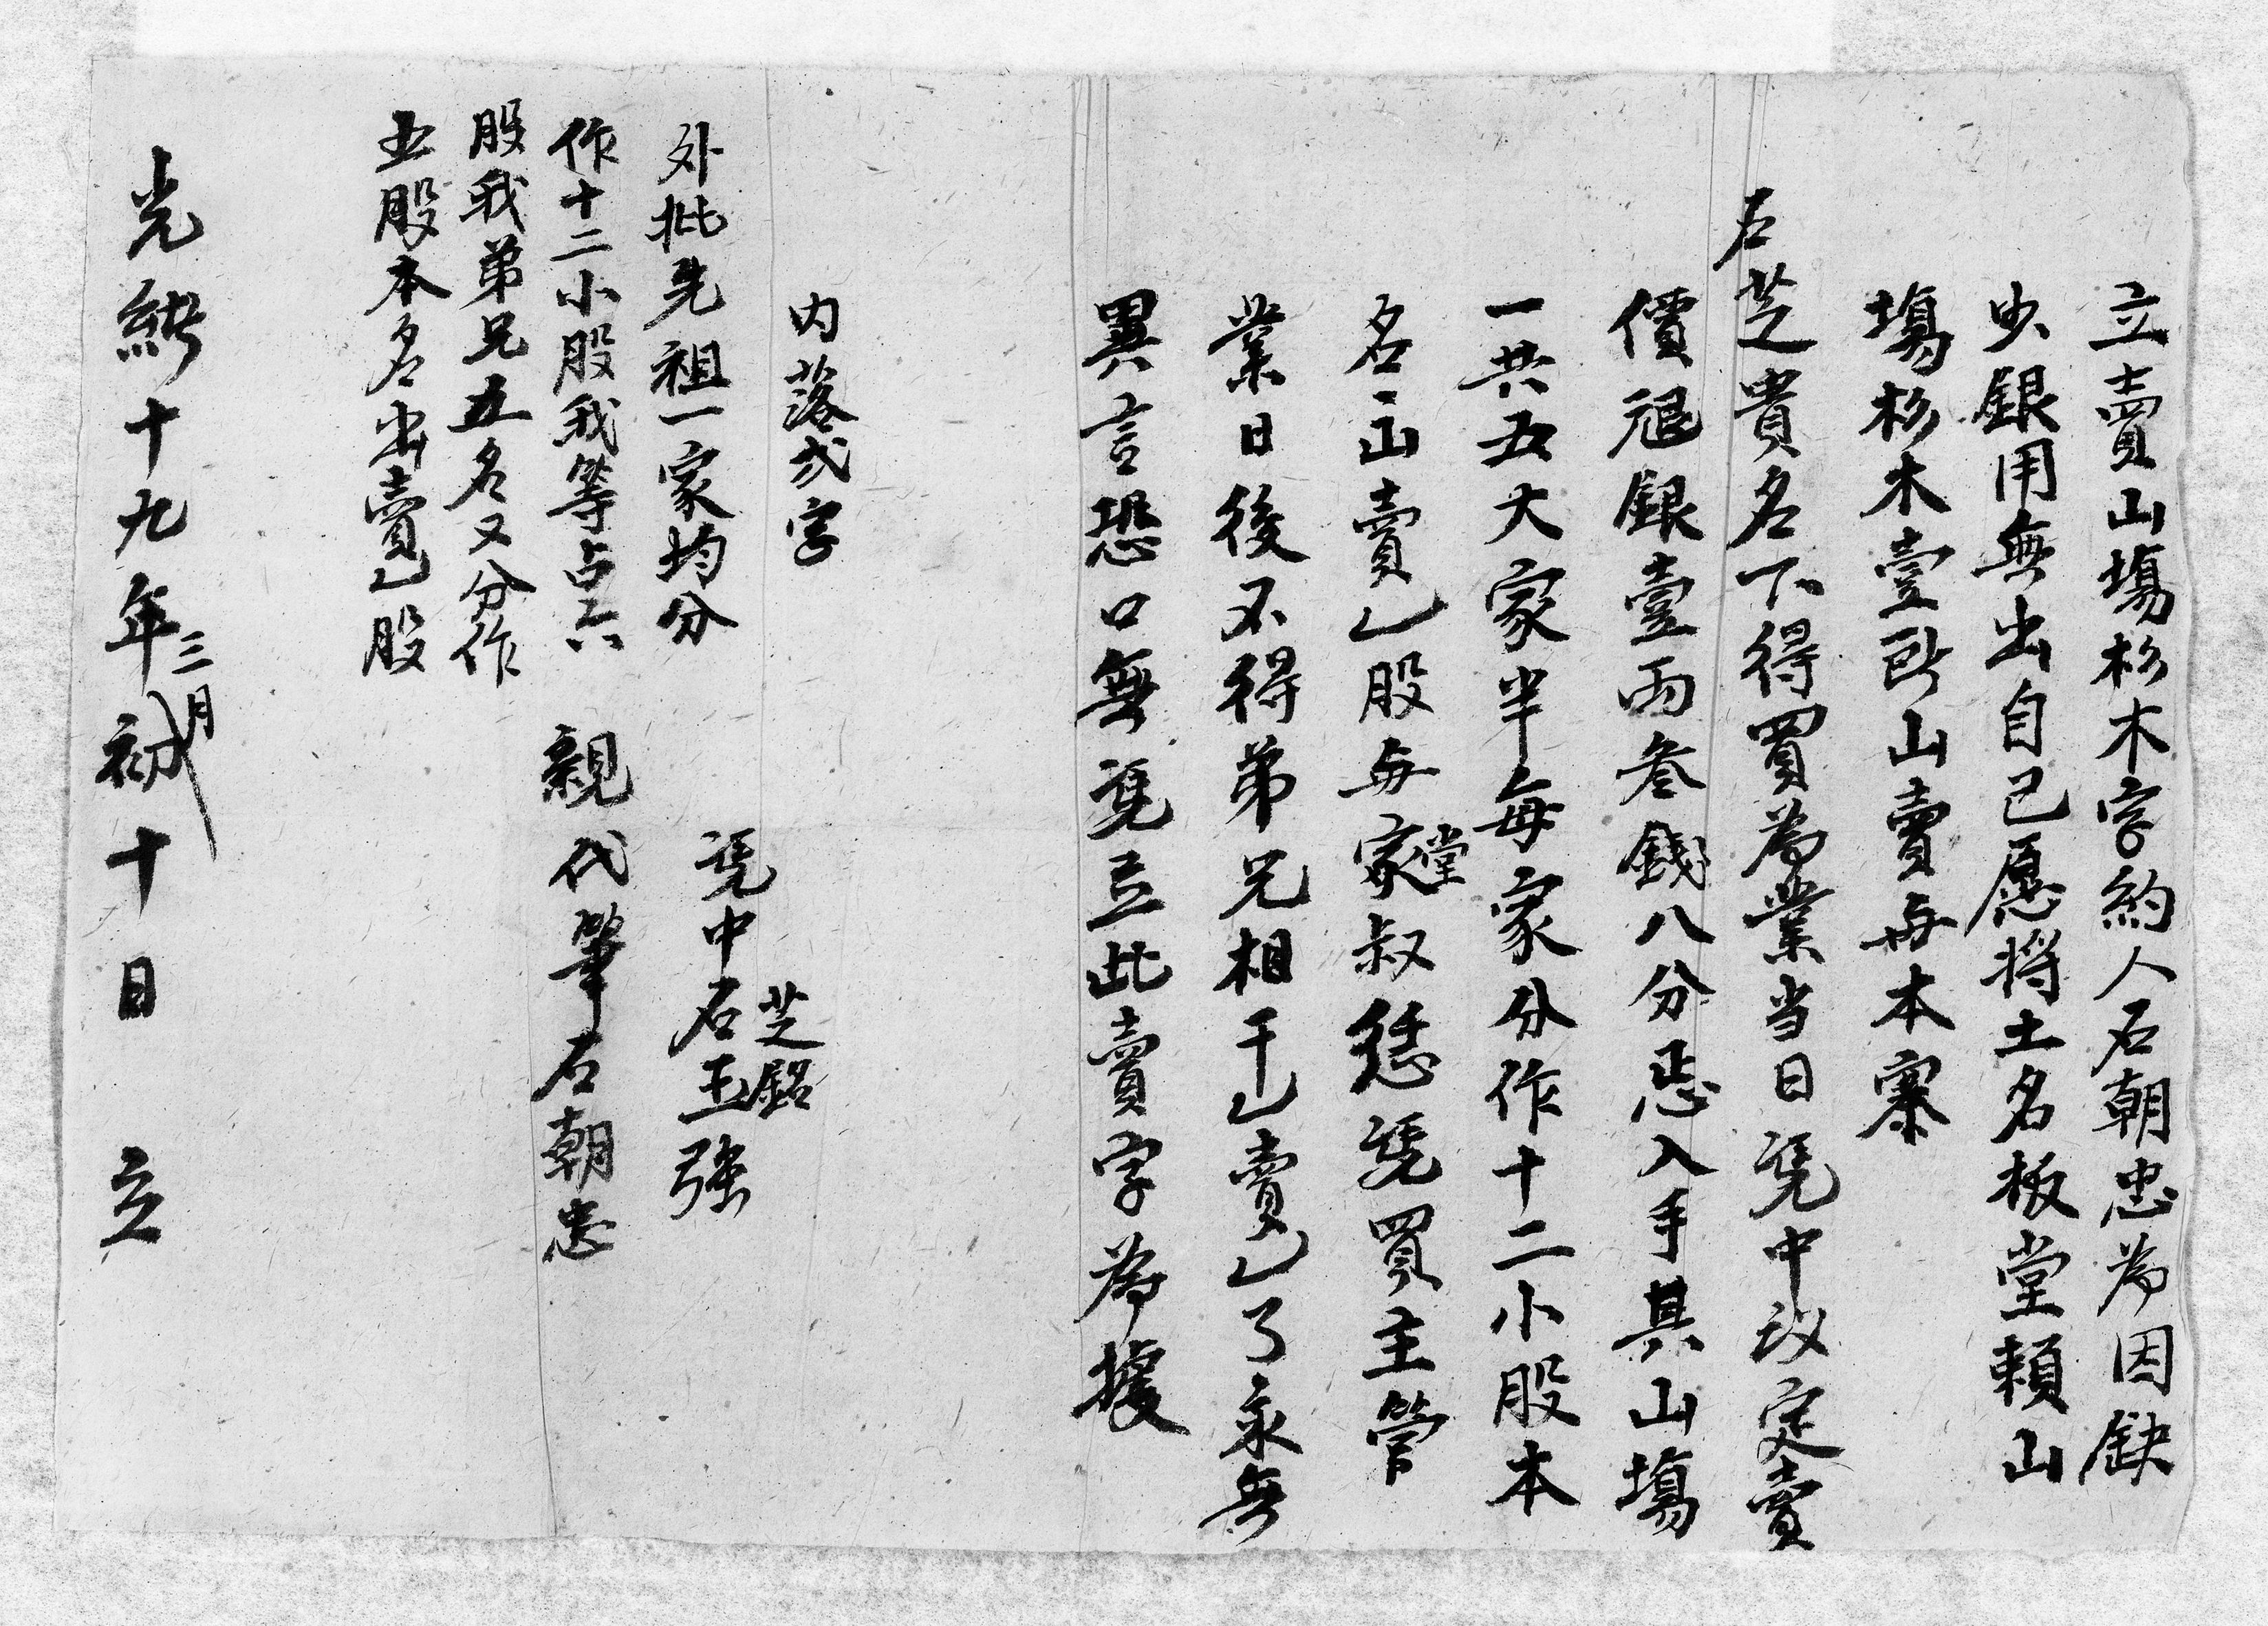 立賣山塲杉木字約人石朝忠為因缺
少銀用無出自己愿將土名板堂頼山
塲杉木壹所山賣與本寨
石芝貴名下得買為業当日凭中议定賣
價銀壹両叁錢八分入手其山塲
一共五大家半每家分作十二小股本
名山賣乙股與家堂叔凭買主管
業日後不得弟兄相干乙賣乙了永無
異言恐口無凭立此賣字為據
内落弍字
外批先祖一家均分
作十二小股我等占六
股我弟兄五名又分作
五股本名出賣乙股
凭中石芝銘
玉強
親代筆石朝忠
光緒十九年三月初十日 立